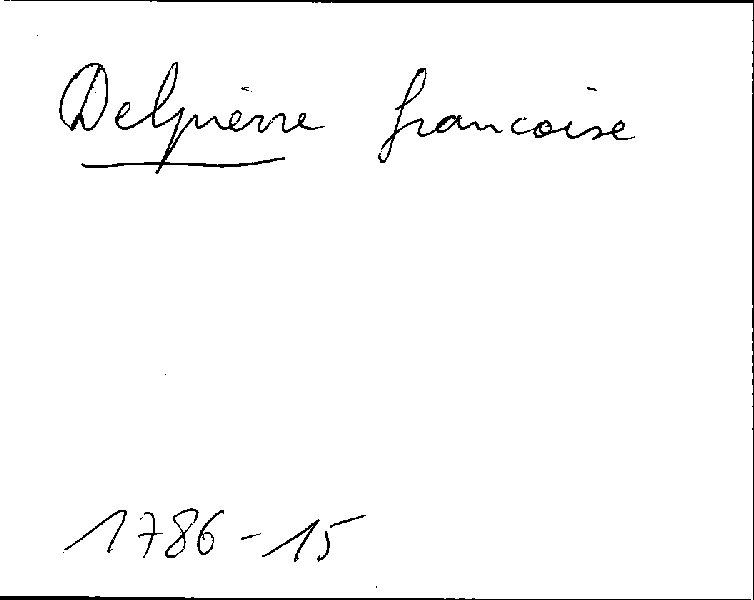 Delpierre francoise
1786-15